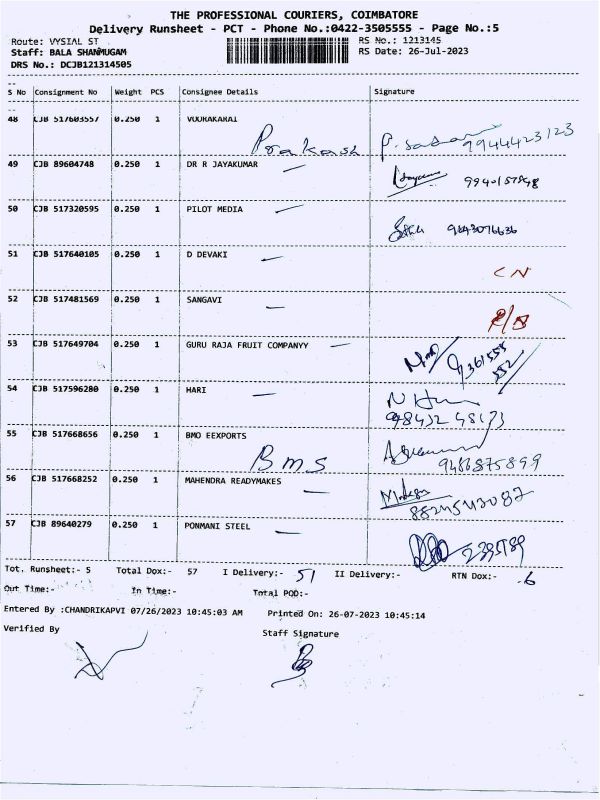 THE PROFESSIONAL COURIERS, COIMBATORE
Delivery Runsheet - PCT - Phone No.:0422-3505555 - Page No.:5
Route: VYSIAL ST RS No.: 1213145
Staff: BALA SHANMUGAM RS Date: 26-Jul-2023
DRS No.: DCJB121314505
S No Consignment No Weight PCS Consignee Details Signature
48 CJB 517603557 0.250 1 VOORAKARAI
Prakash 9944423123
49 CJB 89604748 0.250 1 DR R JAYAKUMAR
50 CJB 517320595 0.250 1 PILOT MEDIA 9843076636
51 CJB 517640105 0.250 1 D DEVAKI
CN
52 CJB 517481569 0.250 1 SANGAVI
53 CJB 517649704 0.250 1 GURU RAJA FRUIT COMPANYY
54 CJB 517596280 0.250 1 HARI
55 CJB 517668656 0.250 1 BMO EEXPORTS
Bms 9486875899
56 CJB 517668252 0.250 1 MAHENDRA READYMAKES
57 CJB 89640279 0.250 1 PONMANI STEEL
Tot. Runsheet:- 5 Total Dox:- 57 I Delivery:- 51 II Delivery:- RTN Dox:- 6
Out Time:- In Time:- Total POD:-
Entered By :CHANDRIKAPVI 07/26/2023 10:45:03 AM Printed On: 26-07-2023 10:45:14
Verified By Staff Signature